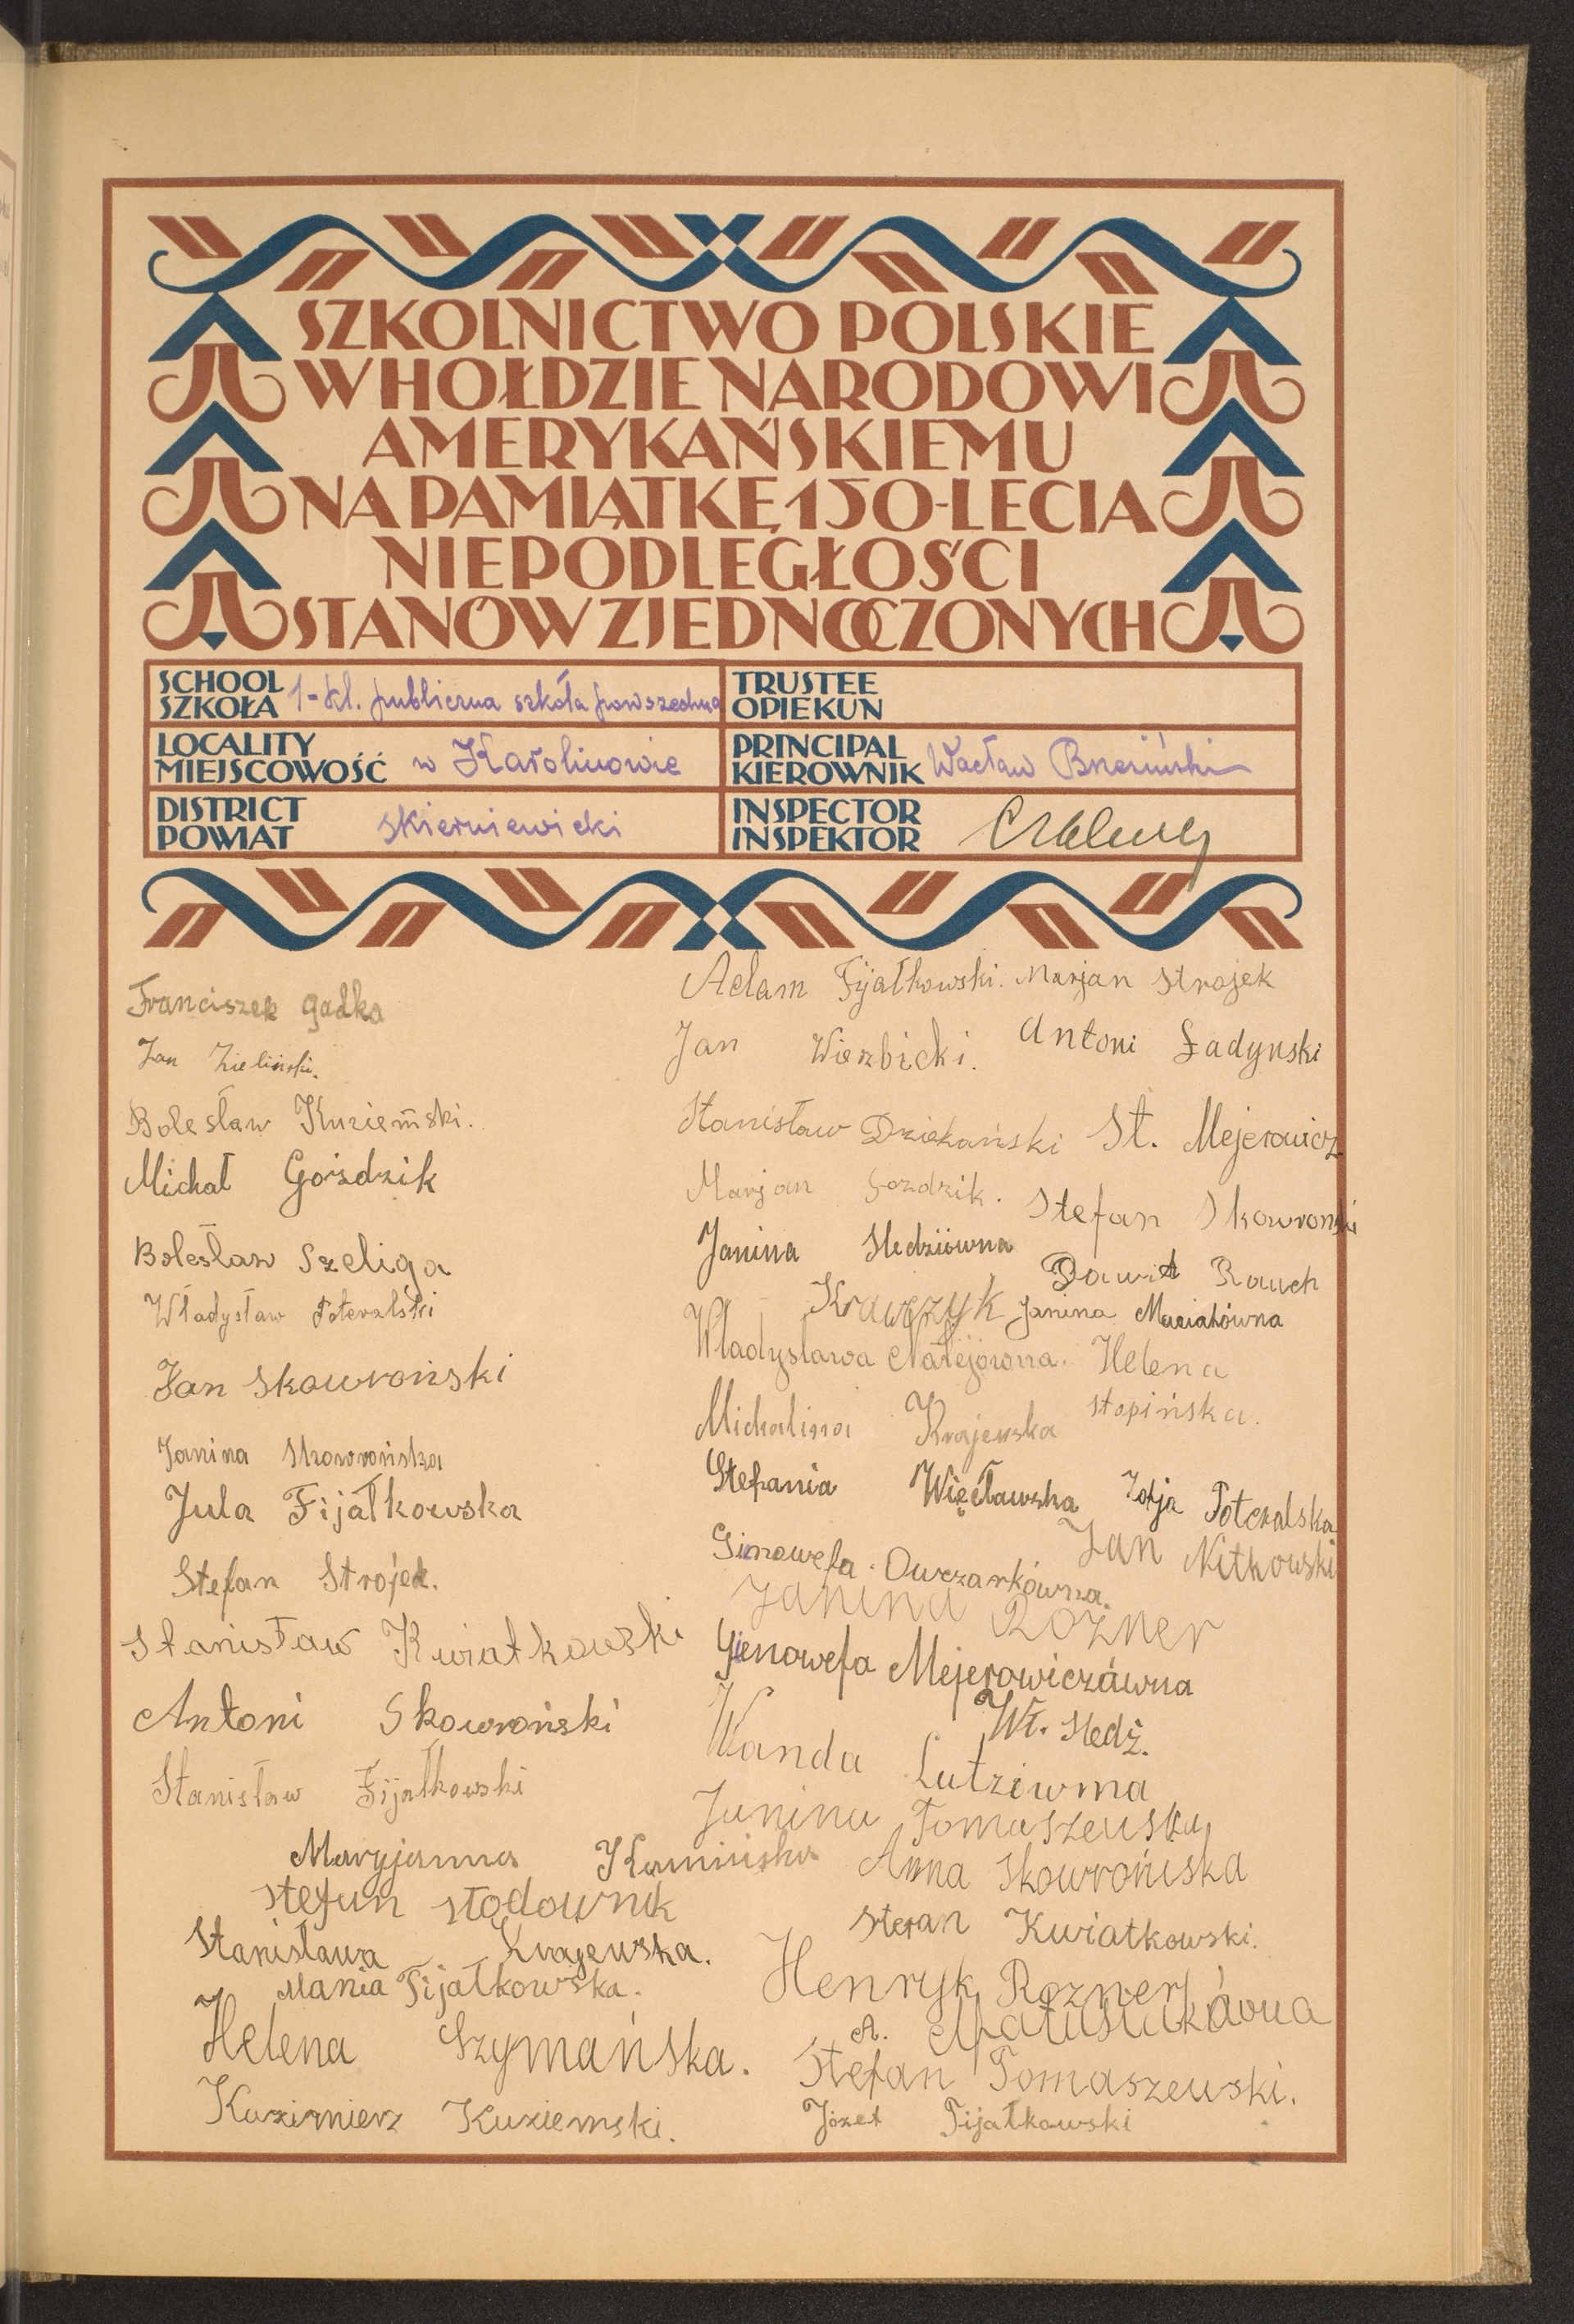 SZKOLNICTWO POLSKIE
W HOŁDZIE NARODOWI
AMERYKAŃSKIEMU
NA PAMIĄTKĘ 150-LECIA
NIEPODLEGŁOŚCI
STANÓW ZJEDNOCZONYCH
SCHOOL
SZKOŁA 1-kl. publiczna szkoła powszechna
TRUSTEE
OPIEKUN
LOCALITY
MIEJSCOWOŚĆ w Karolinowie
PRINCIPAL
KIEROWNIK Wacław Brzeziński
DISTRICT
POWIAT skierniewicki
INSPECTOR
INSPEKTOR
Franciszek Gadka
Jan Zieliński.
Bolesław Kuziemski.
Michał Goździk
Bolesław Szeliga
Władysław Poteralski
Jan Skowroński
Janina Skowrońska
Jula Fijałkowska
Stefan Strojek.
Stanisław Kwiatkowski
Antoni Skowroński
Stanisław Fijałkowski
Maryjanna Kamińska
Stefan Stodownik
Stanisława Krajewska.
Mania Fijałkowska.
Helena Szymańska.
Kazimierz Kuziemski.
Adam Fijałkowski. Marjan Strojek
Jan Wierzbicki. Antoni Ładynski
Stanisław Dziekański St. Mejerowicz
Marjan Gozdzik. Stefan Skowronski
Janina Śledziówna
Dawid Rauch
Krawczyk Janina Maciakówna
Władysława Natejówna. Helena
Stopińska.
Michalina Krajewska
Stefania Więcławska Zofja Poteralska
Jan Nitkowski
Ginowefa Owczarkówna.
Janina Rozner
Gienowefa Mejerowiczówna
Wł. Śledź.
Wanda Lutziwna
Janina Tomaszewska
Anna Skowrońska
Stefan Kwiatkowski.
Henryk Rozner
A. Matusiakówna
Stefan Tomaszewski.
Józef Fijałkowski